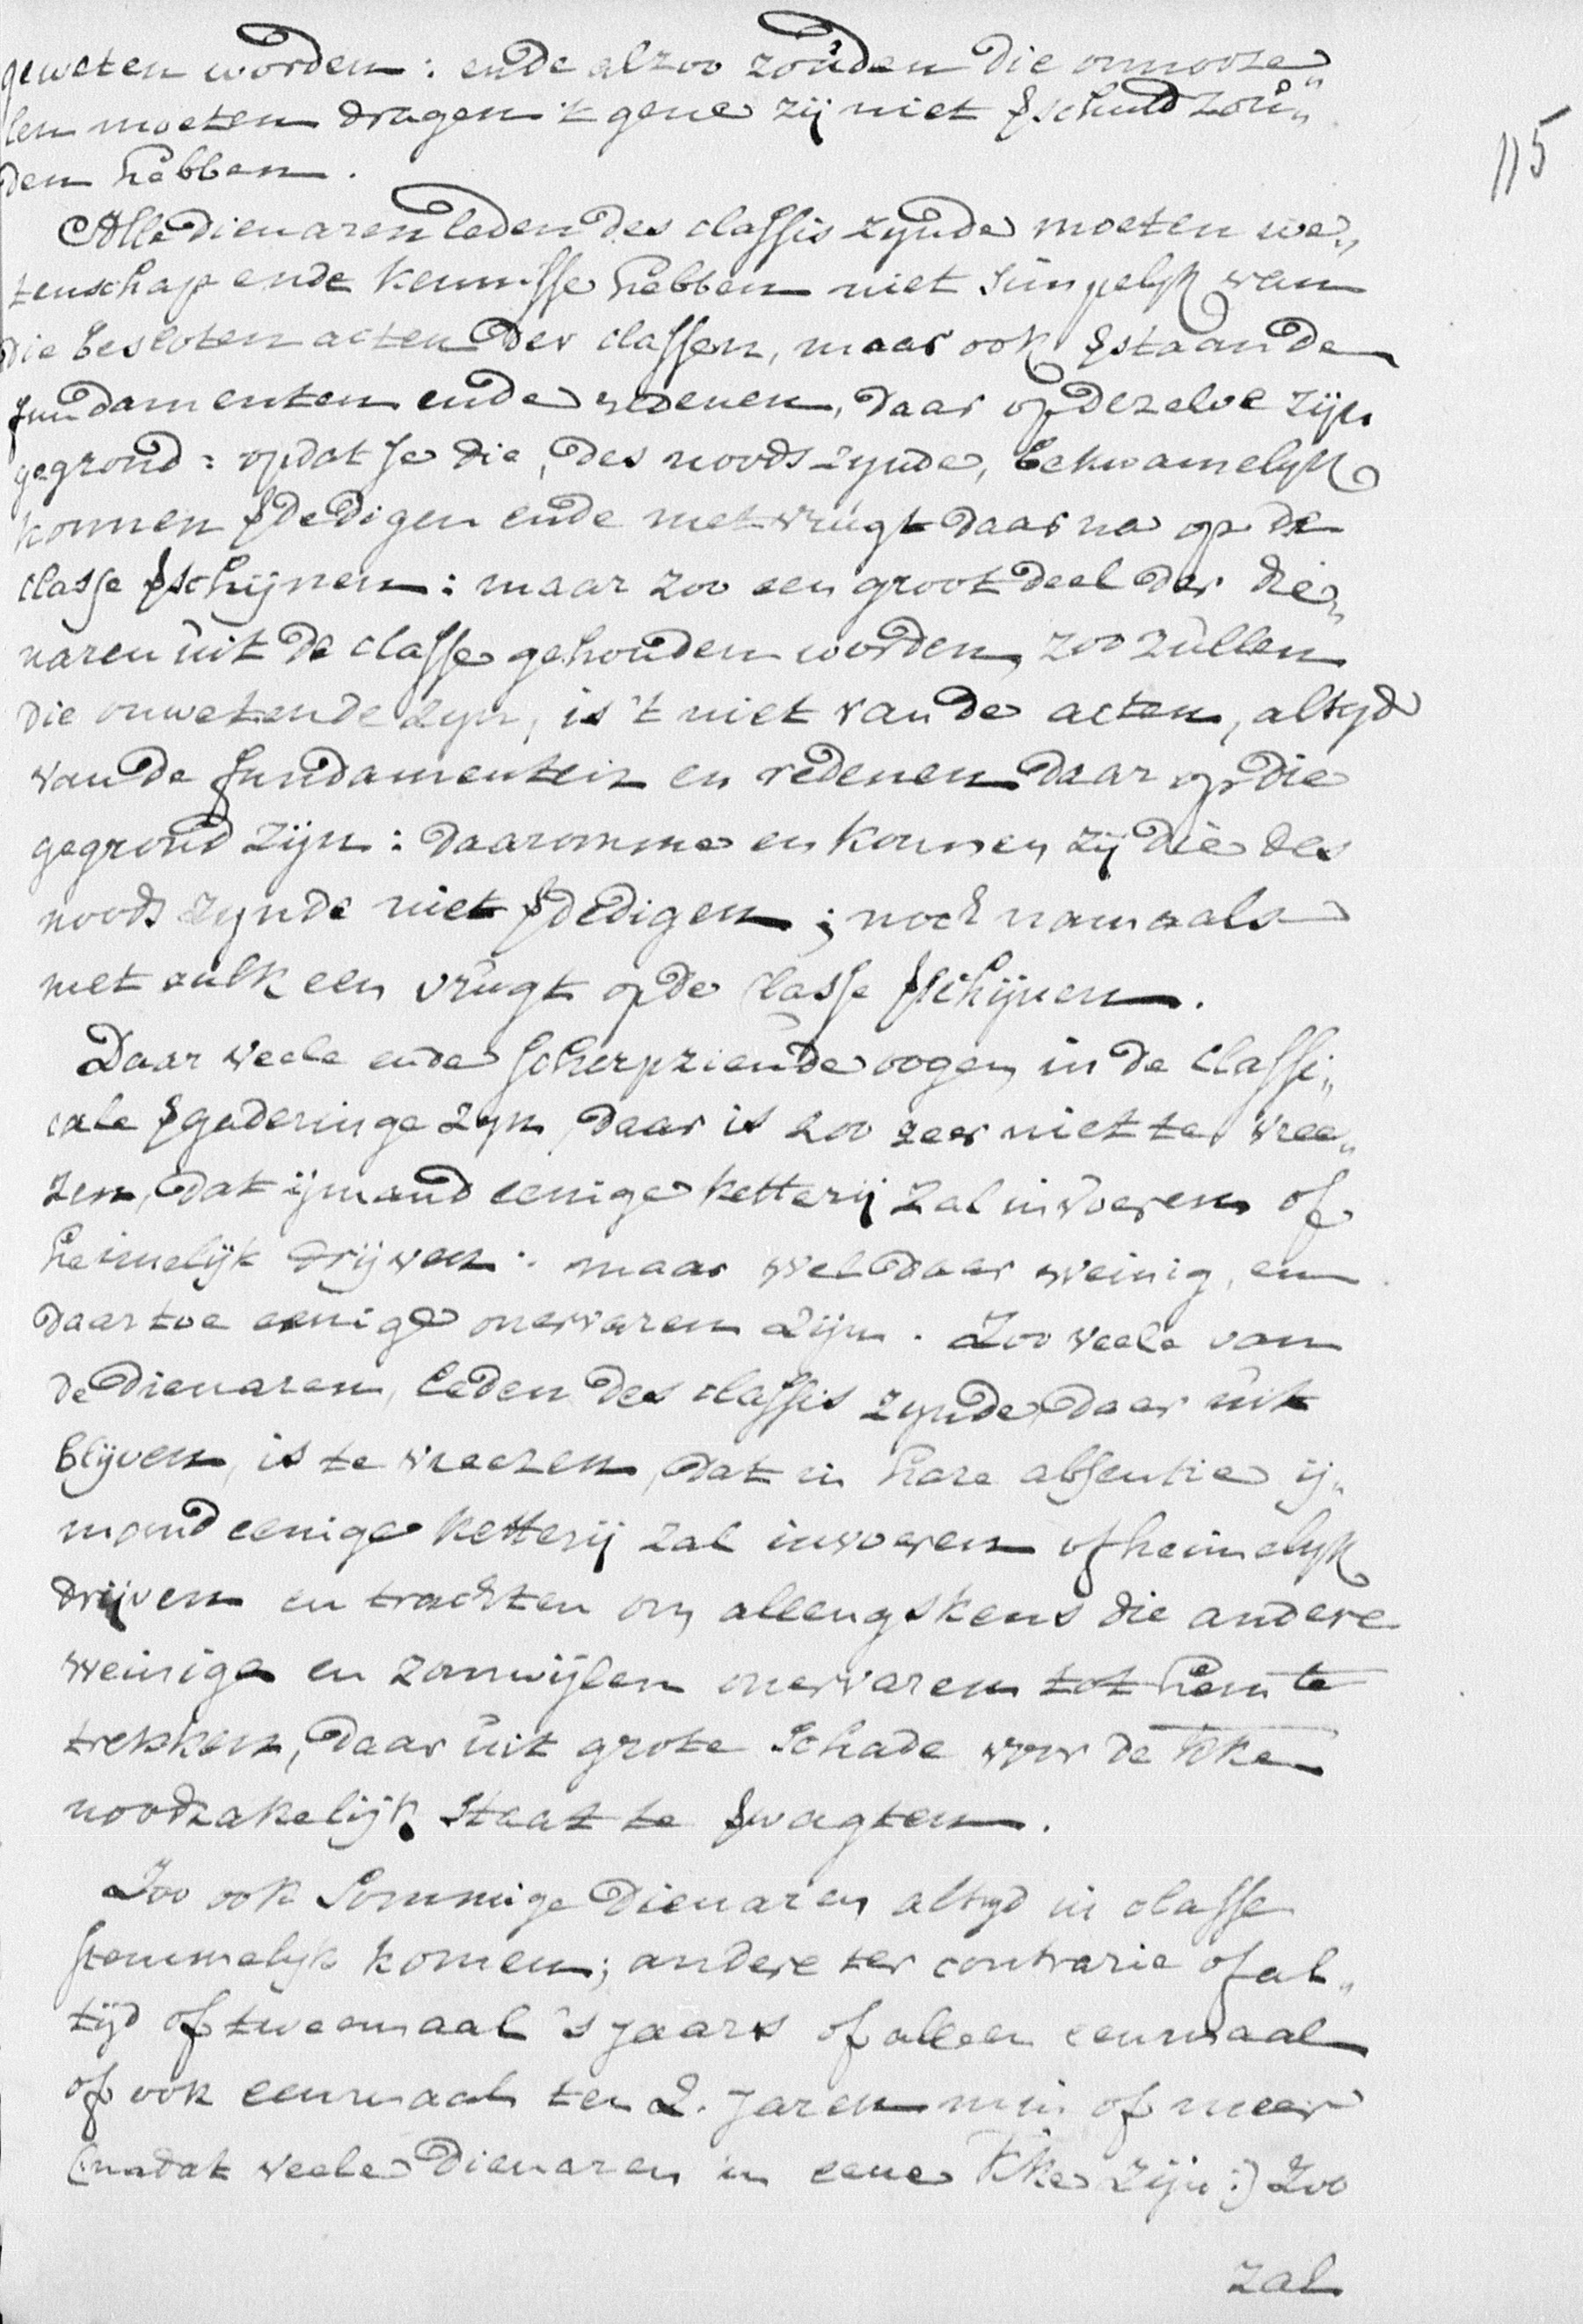 geweten worden: ende alzoo zouden die onnooze„
len moeten dragen 't gene zij niet §schuld zou„
den hebben.
115
Alle dienaren leden des classis zynde moeten we„
tenschap ende kennisse hebben niet simpelyk van
die besloten acten der classen, maar ook §staan de
fundamenten ende redenen, daar op dezelve zijn
gegrond: opdat se die, des noods zynde, bekwamelyk
konnen §dedigen ende met vrugt daar na op de
classe §schijnen: maar zoo een groot deel der die„
naren uit de classe gehouden worden, zoo zullen
die onwetende zyn, is 't niet van de acten, altyd
van de fundamenten en redenen daar op die
gegrond zijn: daaromme en konnen zij die des
noods zynde niet §dedigen; noch namaals
met zulk een vrugt op de classe §schijnen.
Daar veele ende scherpziende oogen in de classi„
cale §gaderinge zyn, daar is zoo zeer niet te vree„
zen, dat ijmand eenige ketterij zal invoeren of
heimelijk drijven: maar wel daar weinig, en
daar toe eenige onervaren zijn. Zoo veele van
de dienaren, leden des classis zynde, daar uit
blijven, is te vreezen, dat in hare absentie ij„
mand eenige ketterij zal invoeren of heimelyk
drijven en trachten om allengskens die andere
weinige en zomwijlen onervaren tot hem te
trekken, daar uit grote schade voor de kke
noodzakelijk staat te §wagten.
Zoo ook sommige dienaren altyd in classe
stemmelyk komen; andere ter contrarie of al„
tijd of tweemaal 's jaars of alleen eenmaal
of ook eenmaal ten 2. jaren min of meer
(omdat veele dienaren in eene kke zijn:) Zoo
zal